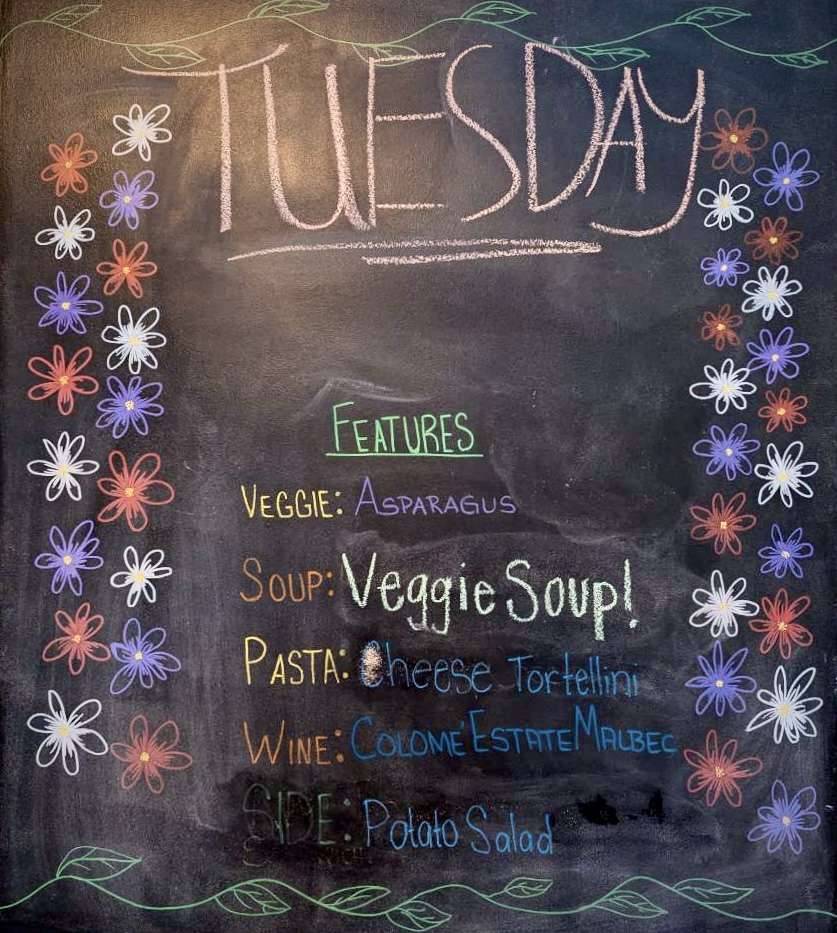 TUESDAY
FEATURES
VEGGIE: ASPARAGUS
SOUP: Veggie Soup!
PASTA: Cheese Tortellini
WINE: COLOMÉ ESTATE MALBEC
SIDE: Potato Salad